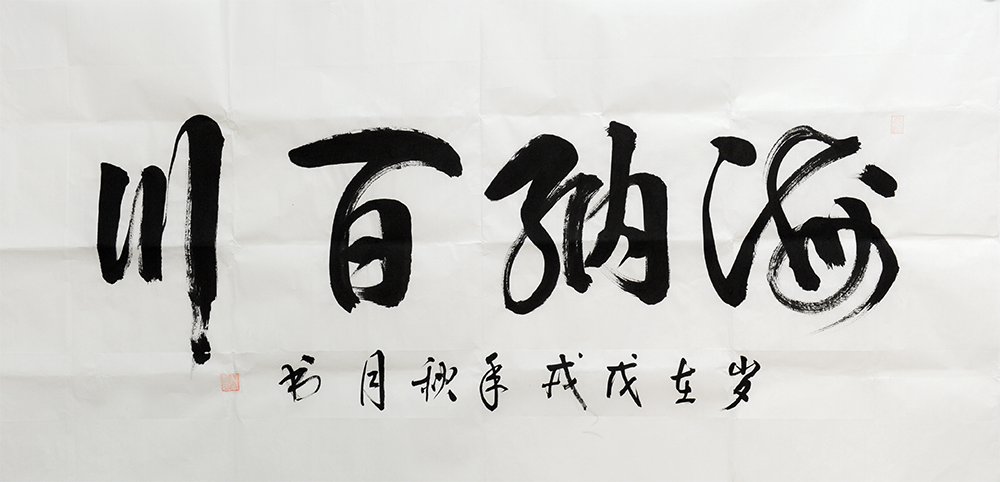 海纳百川
岁在戊戌年秋月书